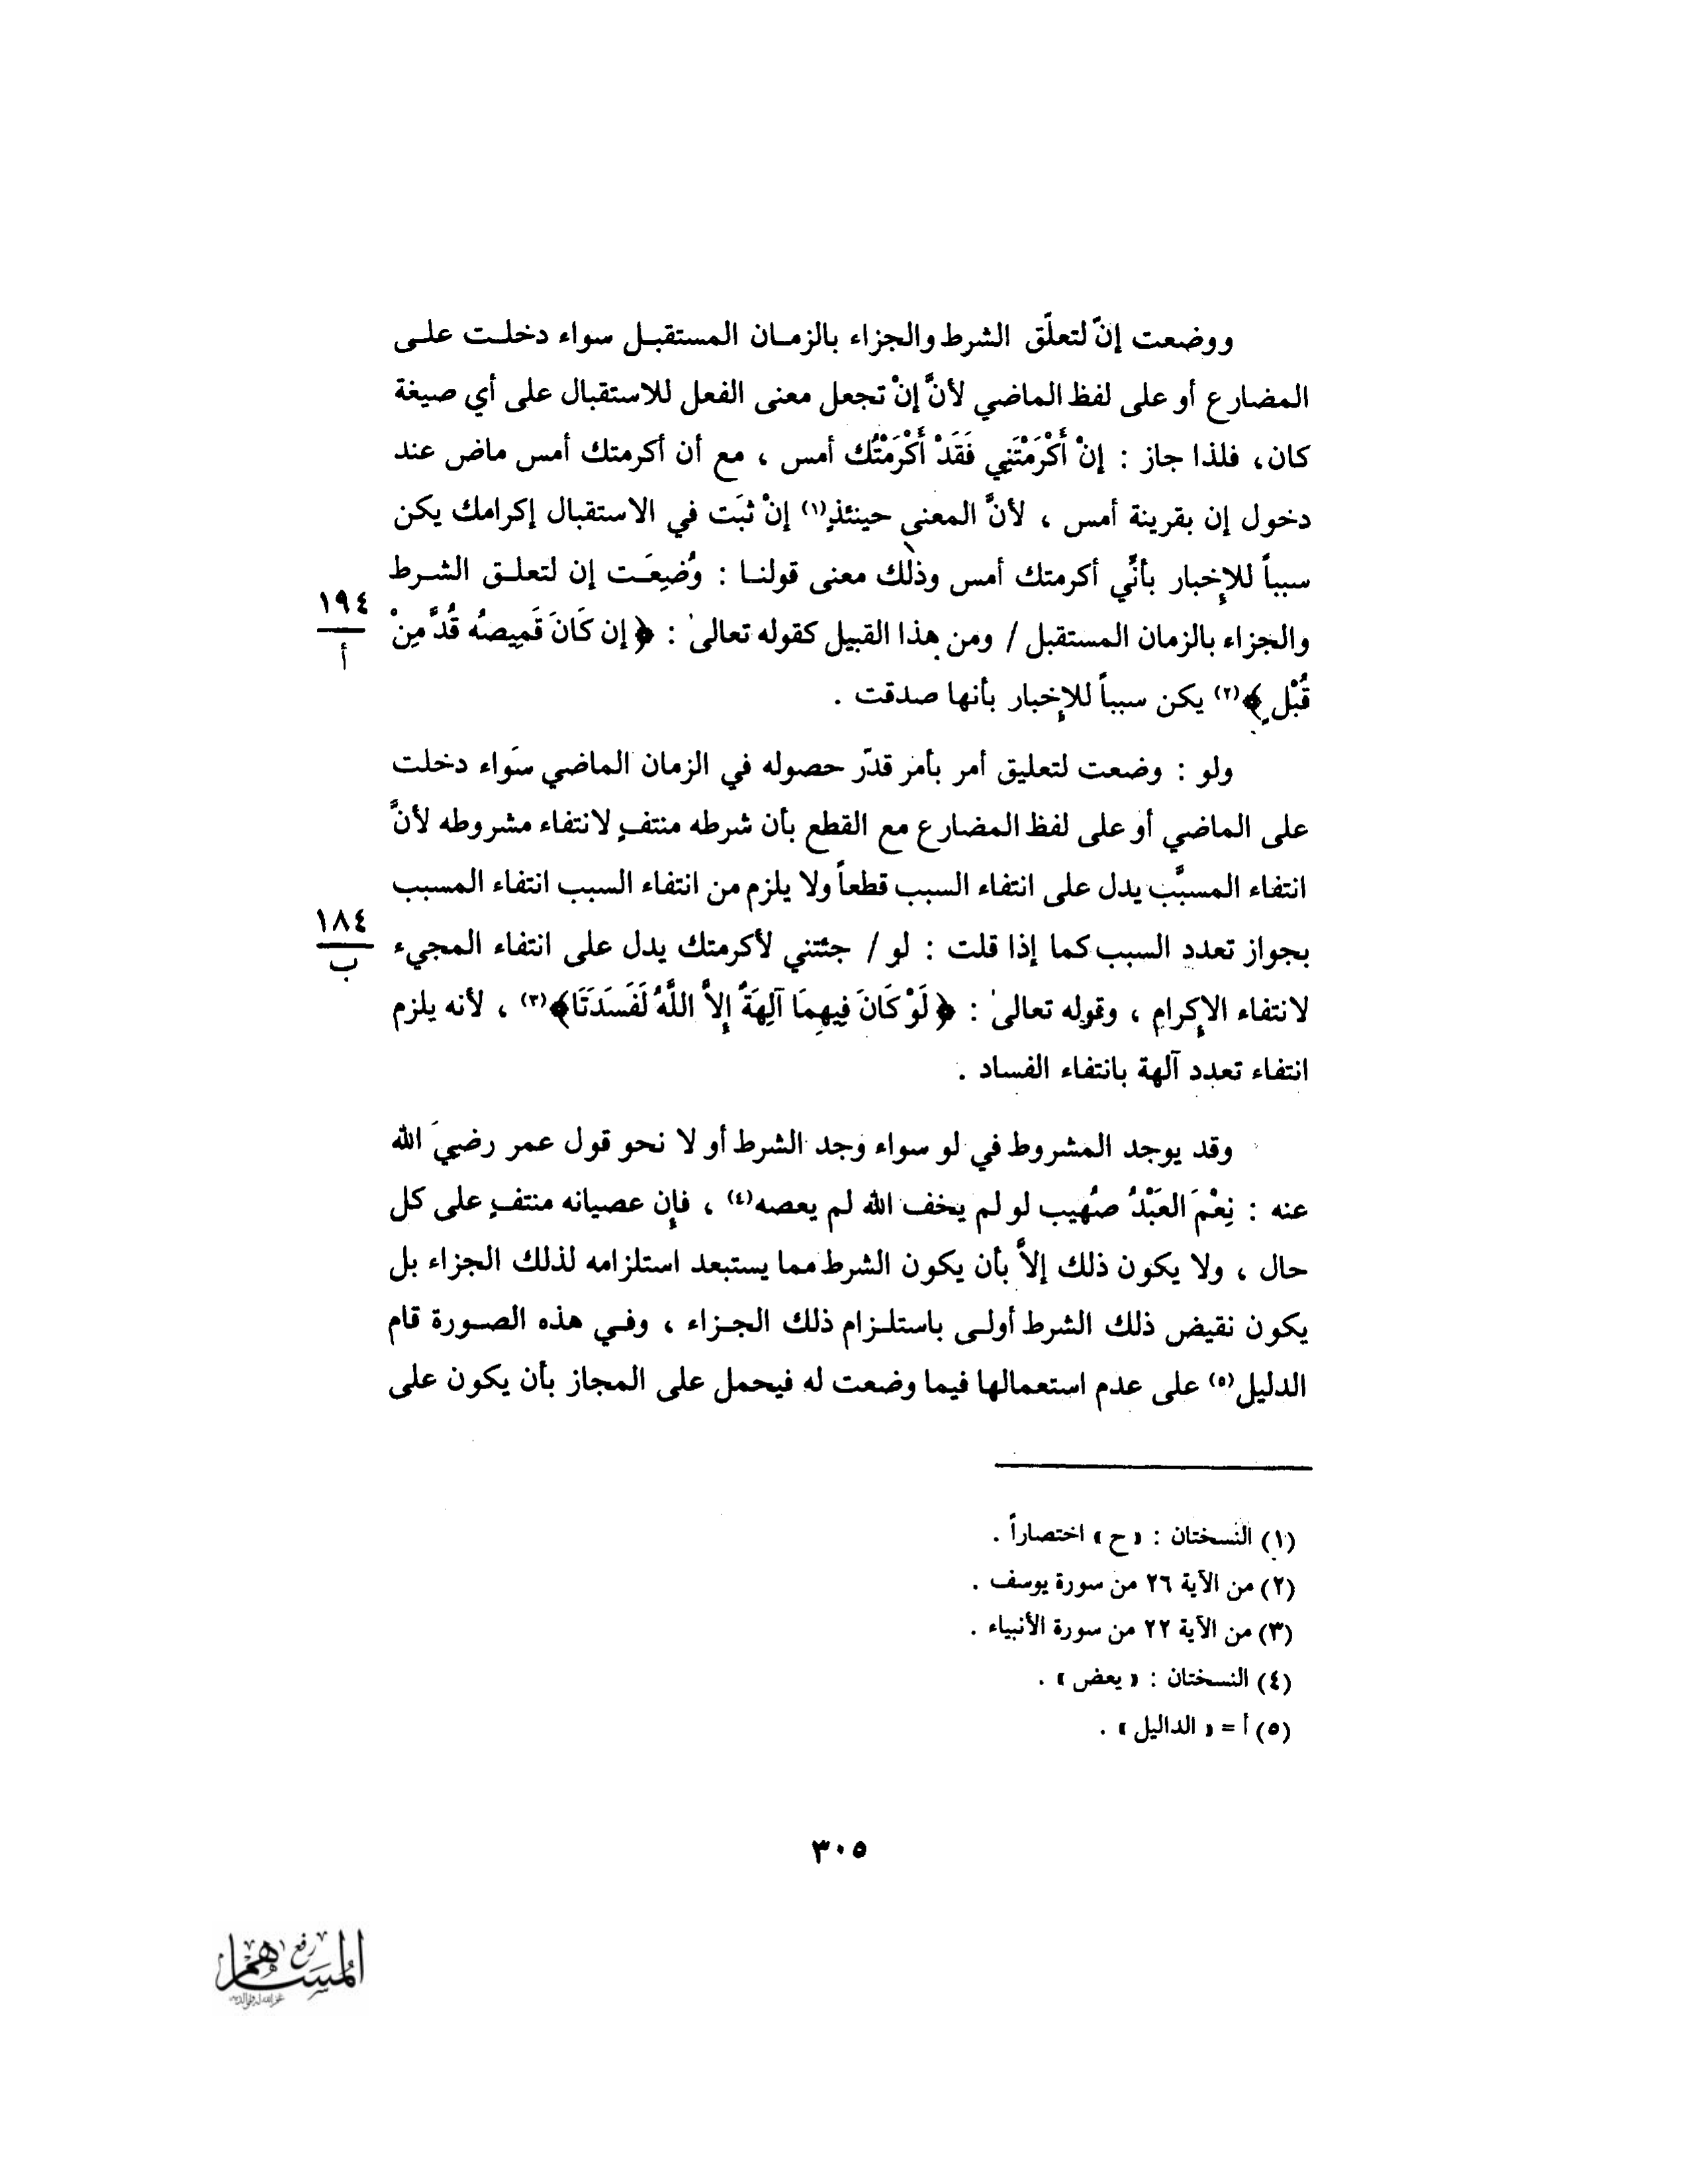 ووضعت إنّ لتعلّق الشرط والجزاء بالزمـان المستقبـل سواء دخلـت علـى
المضارع أو على لفظ الماضي لأنَّ إنْ تجعل معنى الفعل للاستقبال على أي صيغة
كان، فلذا جاز : إنْ أَكْرَمْتَنِي فَقَدْ أَكْرَمْتُك أمس ، مع أن أكرمتك أمس ماض عند
دخول إن بقرينة أمس ، لأنَّ المعنى حينئذٍ(١) إنْ ثبَت في الاستقبال إكرامك يكن
سبباً للإخبار بأنّي أكرمتك أمس وذلك معنى قولنـا : وُضِعَـت إن لتعلـق الشـرط
١٩٤
أ
والجزاء بالزمان المستقبل / ومن هذا القبيل كقوله تعالى : ﴿ إن كَانَ قَمِيصُه قُدَّ مِنْ
قُبْلٍ ﴾(٢) يكن سبباً للإخبار بأنها صدقت .
ولو : وضعت لتعليق أمر بأمر قدّر حصوله في الزمان الماضي سَواء دخلت
على الماضي أو على لفظ المضارع مع القطع بأن شرطه منتفٍ لانتفاء مشروطه لأنَّ
انتفاء المسبَّب يدل على انتفاء السبب قطعاً ولا يلزم من انتفاء السبب انتفاء المسبب
١٨٤
ب
بجواز تعدد السبب كما إذا قلت : لو / جئتني لأكرمتك يدل على انتفاء المجيء
لانتفاء الإكرام ، وقوله تعالى : ﴿ لَوْ كَانَ فِيهِمَا آلِهَةٌ إلاَّ اللَّهُ لَفَسَدَتَا﴾(٣) ، لأنه يلزم
انتفاء تعدد آلهة بانتفاء الفساد .
وقد يوجد المشروط في لو سواء وجد الشرط أو لا نحو قول عمر رضيَ الله
عنه : نِعْمَ العَبْدُ صُهيب لو لم يخف الله لم يعصه(٤) ، فإن عصيانه منتفٍ على كل
حال ، ولا يكون ذلك إلاَّ بأن يكون الشرط مما يستبعد استلزامه لذلك الجزاء بل
يكون نقيض ذلك الشرط أولـى باستلـزام ذلك الجـزاء ، وفـي هذه الصـورة قام
الدليل(٥) على عدم استعمالها فيما وضعت له فيحمل على المجاز بأن يكون على
(١) النسختان : « ح » اختصاراً .
(٢) من الآية ٢٦ من سورة يوسف .
(٣) من الآية ٢٢ من سورة الأنبياء .
(٤) النسختان : « يعض » .
(٥) أ = « الداليل » .
٣٠٥
رفع
المساهم
غفر الله له ولوالديه